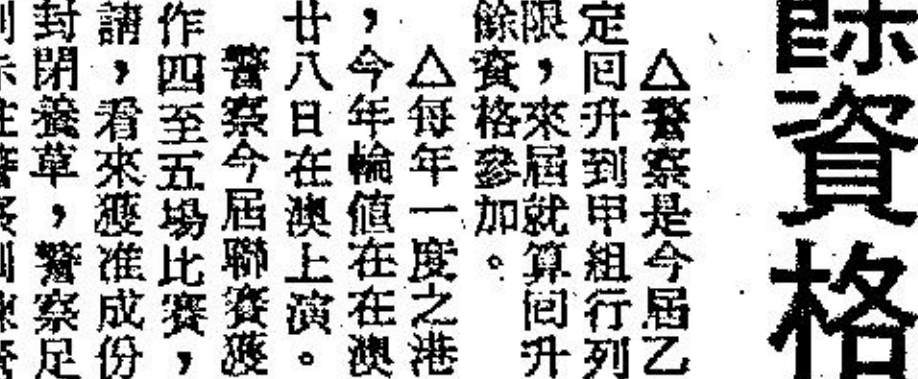 資格
△警察是今屆乙
定回升到甲組行列
限，來屆就算回升
餘資格參加。
△每年一度之港
，今年輪值在在澳
廿八日在澳上演。
警察今屆聯賽獲
作四至五場比賽，
請，看來獲准成份
封閉養草，警察足